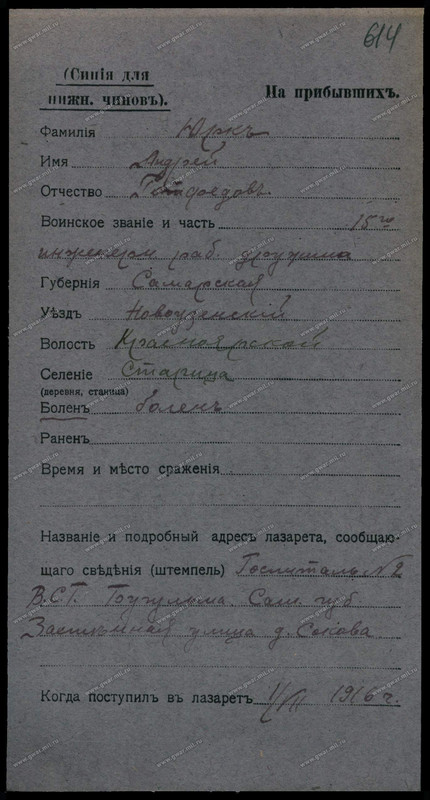 614
(Синія для
нижн. чиновъ).
На прибывшихъ.
Фамилія Юркъ
Имя Андрей
Отчество
Воинское званіе и часть 15го
инженерн. раб. дружина
Губернія Самарская
Уѣздъ Новоузенскій
Волость Красноярской
Селеніе Старица
(деревня, станица)
Боленъ боленъ
Раненъ
Время и мѣсто сраженія
Названіе и подробный адресъ лазарета, сообщаю-
щаго свѣдѣнія (штемпель) Госпиталь №2
В.С.Г. Сам. губ
улица д.
Когда поступилъ въ лазаретъ 1/VII 1916 г.
www.gwar.mil.ru